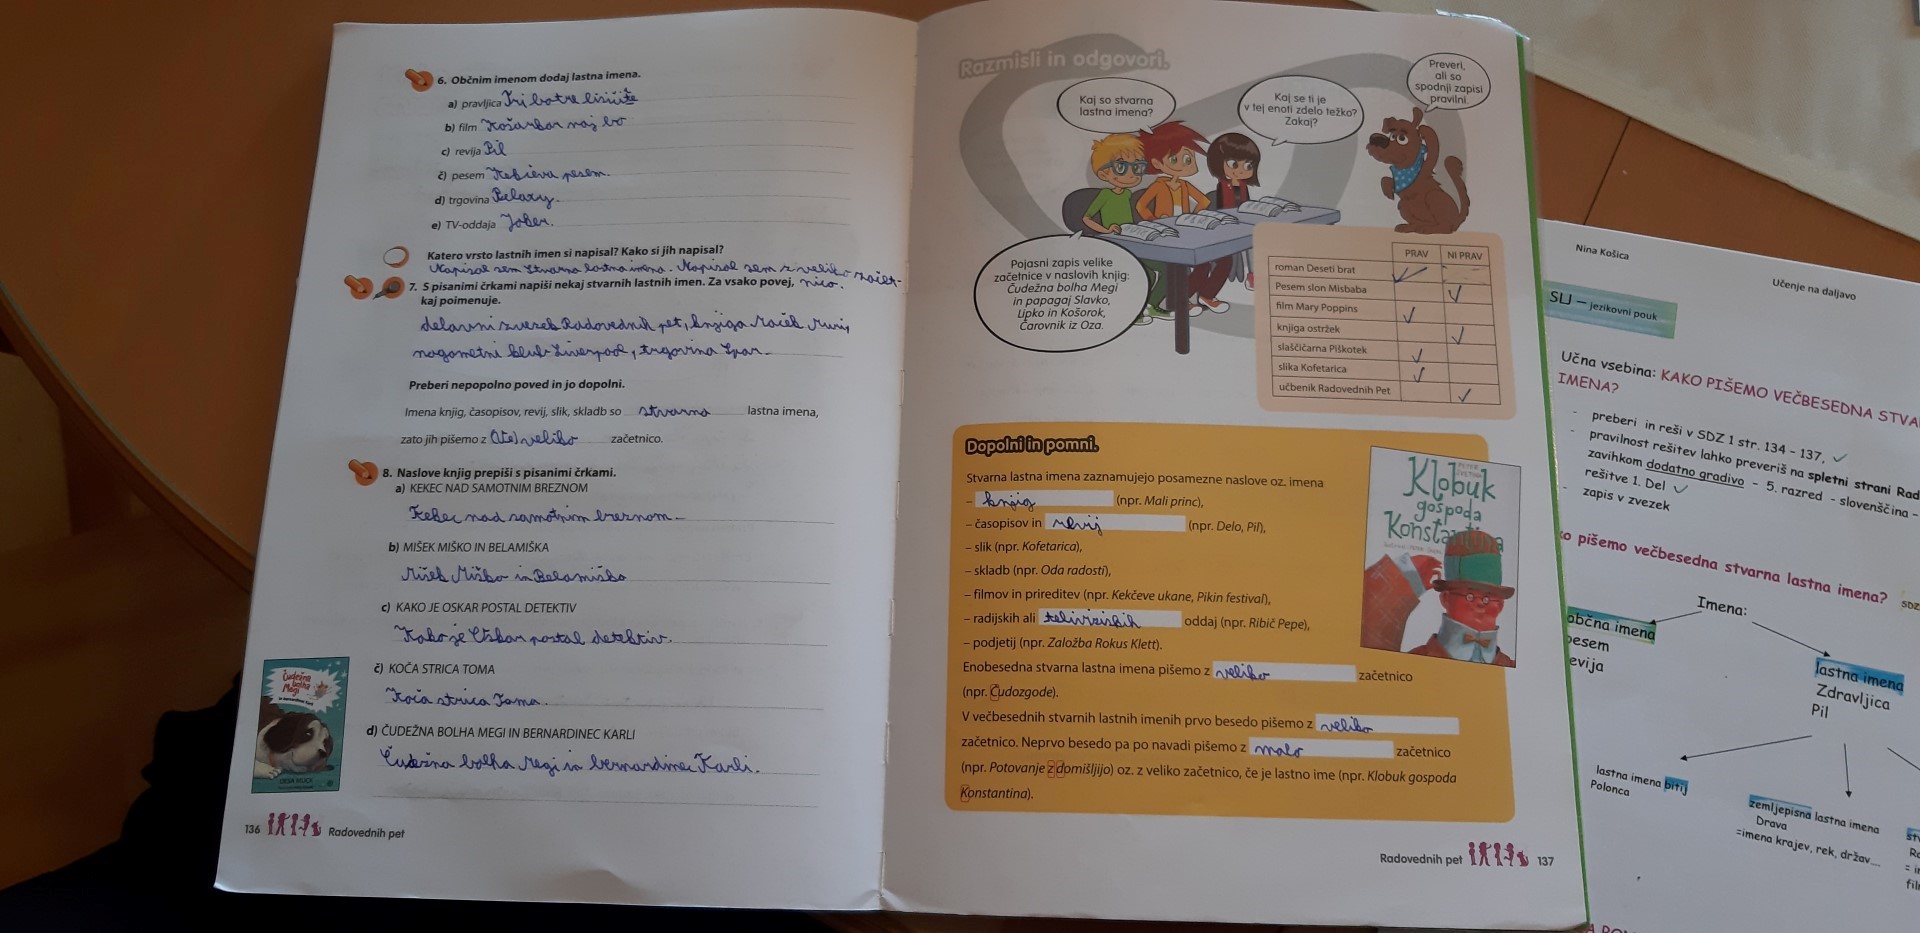 6. Občnim imenom dodaj lastna imena.
a) pravljica Tri botre lisičice
b) film Košarkar naj bo
c) revija Pil
č) pesem Kekčeva pesem.
d) trgovina
e) TV-oddaja Joker.
Katero vrsto lastnih imen si napisal? Kako si jih napisal?
Napisal sem stvarna lastna imena. Napisal sem z veliko začet-
nico.
7. S pisanimi črkami napiši nekaj stvarnih lastnih imen. Za vsako povej,
kaj poimenuje.
delavni zvezek Radovednih pet, knjiga Maček Muri,
nogometni klub Liverpool, trgovina Spar.
Preberi nepopolno poved in jo dopolni.
Imena knjig, časopisov, revij, slik, skladb so stvarna lastna imena,
zato jih pišemo z veliko začetnico.
8. Naslove knjig prepiši s pisanimi črkami.
a) KEKEC NAD SAMOTNIM BREZNOM
Kekec nad samotnim breznom
b) MIŠEK MIŠKO IN BELAMIŠKA
Mišek Miško in Belamiška
c) KAKO JE OSKAR POSTAL DETEKTIV
Kako je Oskar postal detektiv.
č) KOČA STRICA TOMA
Koča strica Toma.
d) ČUDEŽNA BOLHA MEGI IN BERNARDINEC KARLI
Čudežna bolha Megi in bernardinec Karli.
Čudežna
bolha
Megi
136 Radovednih pet
Razmisli in odgovori.
Kaj so stvarna
lastna imena?
Kaj se ti je
v tej enoti zdelo težko?
Zakaj?
Preveri,
ali so
spodnji zapisi
pravilni.
Pojasni zapis velike
začetnice v naslovih knjig:
Čudežna bolha Megi
in papagaj Slavko,
Lipko in Košorok,
Čarovnik iz Oza.
PRAV NI PRAV
roman Deseti brat ✓
Pesem slon Misbaba ✓
film Mary Poppins ✓
knjiga ostržek ✓
slaščičarna Piškotek ✓
slika Kofetarica ✓
učbenik Radovednih Pet ✓
Dopolni in pomni.
Stvarna lastna imena zaznamujejo posamezne naslove oz. imena
– knjig (npr. Mali princ),
– časopisov in revij (npr. Delo, Pil),
– slik (npr. Kofetarica),
– skladb (npr. Oda radosti),
– filmov in prireditev (npr. Kekčeve ukane, Pikin festival),
– radijskih ali oddaj (npr. Ribič Pepe),
– podjetij (npr. Založba Rokus Klett).
Enobesedna stvarna lastna imena pišemo z veliko začetnico
(npr. Čudozgode).
V večbesednih stvarnih lastnih imenih prvo besedo pišemo z veliko
začetnico. Neprvo besedo pa po navadi pišemo z malo začetnico
(npr. Potovanje z domišljijo) oz. z veliko začetnico, če je lastno ime (npr. Klobuk gospoda
Konstantina).
Klobuk
gospoda
Konstantina
Radovednih pet 137
Nina Košica
Učenje na daljavo
SLJ – jezikovni pouk
Učna vsebina: KAKO PIŠEMO VEČBESEDNA STVA
IMENA?
- preberi in reši v SDZ 1 str. 134 - 137, ✓
- pravilnost rešitev lahko preveriš na spletni strani Rad
zavihkom dodatno gradivo - 5. razred - slovenščina -
rešitve 1. Del ✓
- zapis v zvezek
ko pišemo večbesedna stvarna lastna imena?
SDZ
Imena:
občna imena
pesem
revija
lastna imena
Zdravljica
Pil
lastna imena bitij
Polonca
zemljepisna lastna imena
Drava
=imena krajev, rek, držav...